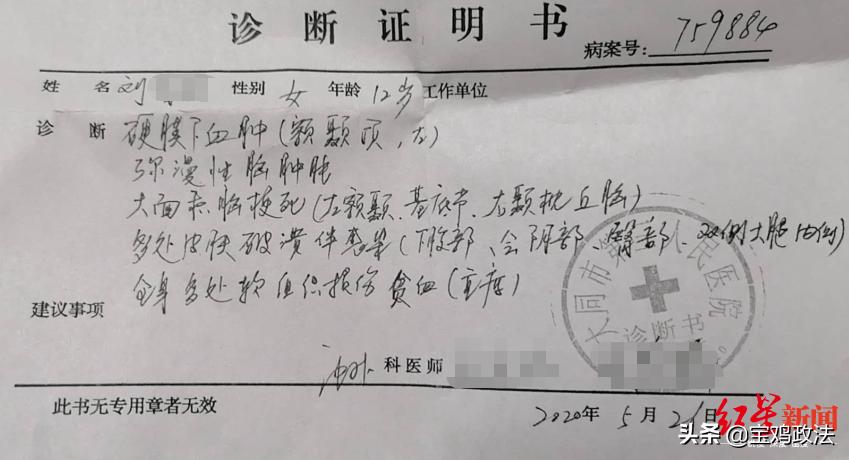 诊断证明书
病案号: 759884
姓 名 刘 性别 女 年龄 12岁 工作单位
诊 断 硬膜下血肿(额颞顶,左)
弥漫性脑肿胀
大面积脑梗死(左额颞、基底节、右颞枕丘脑)
多处皮肤破溃伴感染(下腹部、会阴部、臀部、双侧大腿内侧)
全身多处软组织损伤 贫血(重度)
建议事项
大同市 人民医院
诊断书
科医师
此书无专用章者无效
2020年 5月 日
红星新闻
头条 @宝鸡政法